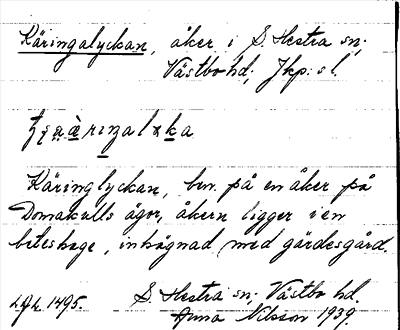 Käringalyckan, åker i S. Hestra sn;
Västbo hd; Jkp: sl.
Käringlyckan, ben. på en åker på
Domakulls ägor, åkern ligger i en
beteshage, inhägnad med gärdesgård.
1495. S. Hestra sn. Västbo hd.
Anna Nilsson 1939